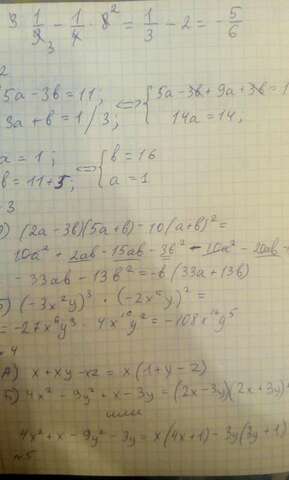 3 1/9₃ - 1/4 · 8² = 1/3 - 2 = - 5/6
2
5a - 3b = 11; ⇔ { 5a - 3b + 9a + 3b = 1
3a + b = 1 / 3; 14a = 14,
a = 1; ⇔ { b = 16
b = 11 + 5; a = 1
3
) (2a - 3b)(5a + b) - 10(a + b)² =
10a² + 2ab - 15ab - 3b² - 10a² - 20ab -
- 33ab - 13b² = -b (33a + 13b)
Б) (-3x²y)³ · (-2x⁵y)² =
= -27x⁶y³ · 4x¹⁰y² = -108x¹⁶y⁵
4
А) x + xy - xz = x(1 + y - z)
Б) 4x² - 9y² + x - 3y = (2x - 3y)(2x + 3y)+
или
4x² + x - 9y² - 3y = x(4x + 1) - 3y(3y + 1)
№5